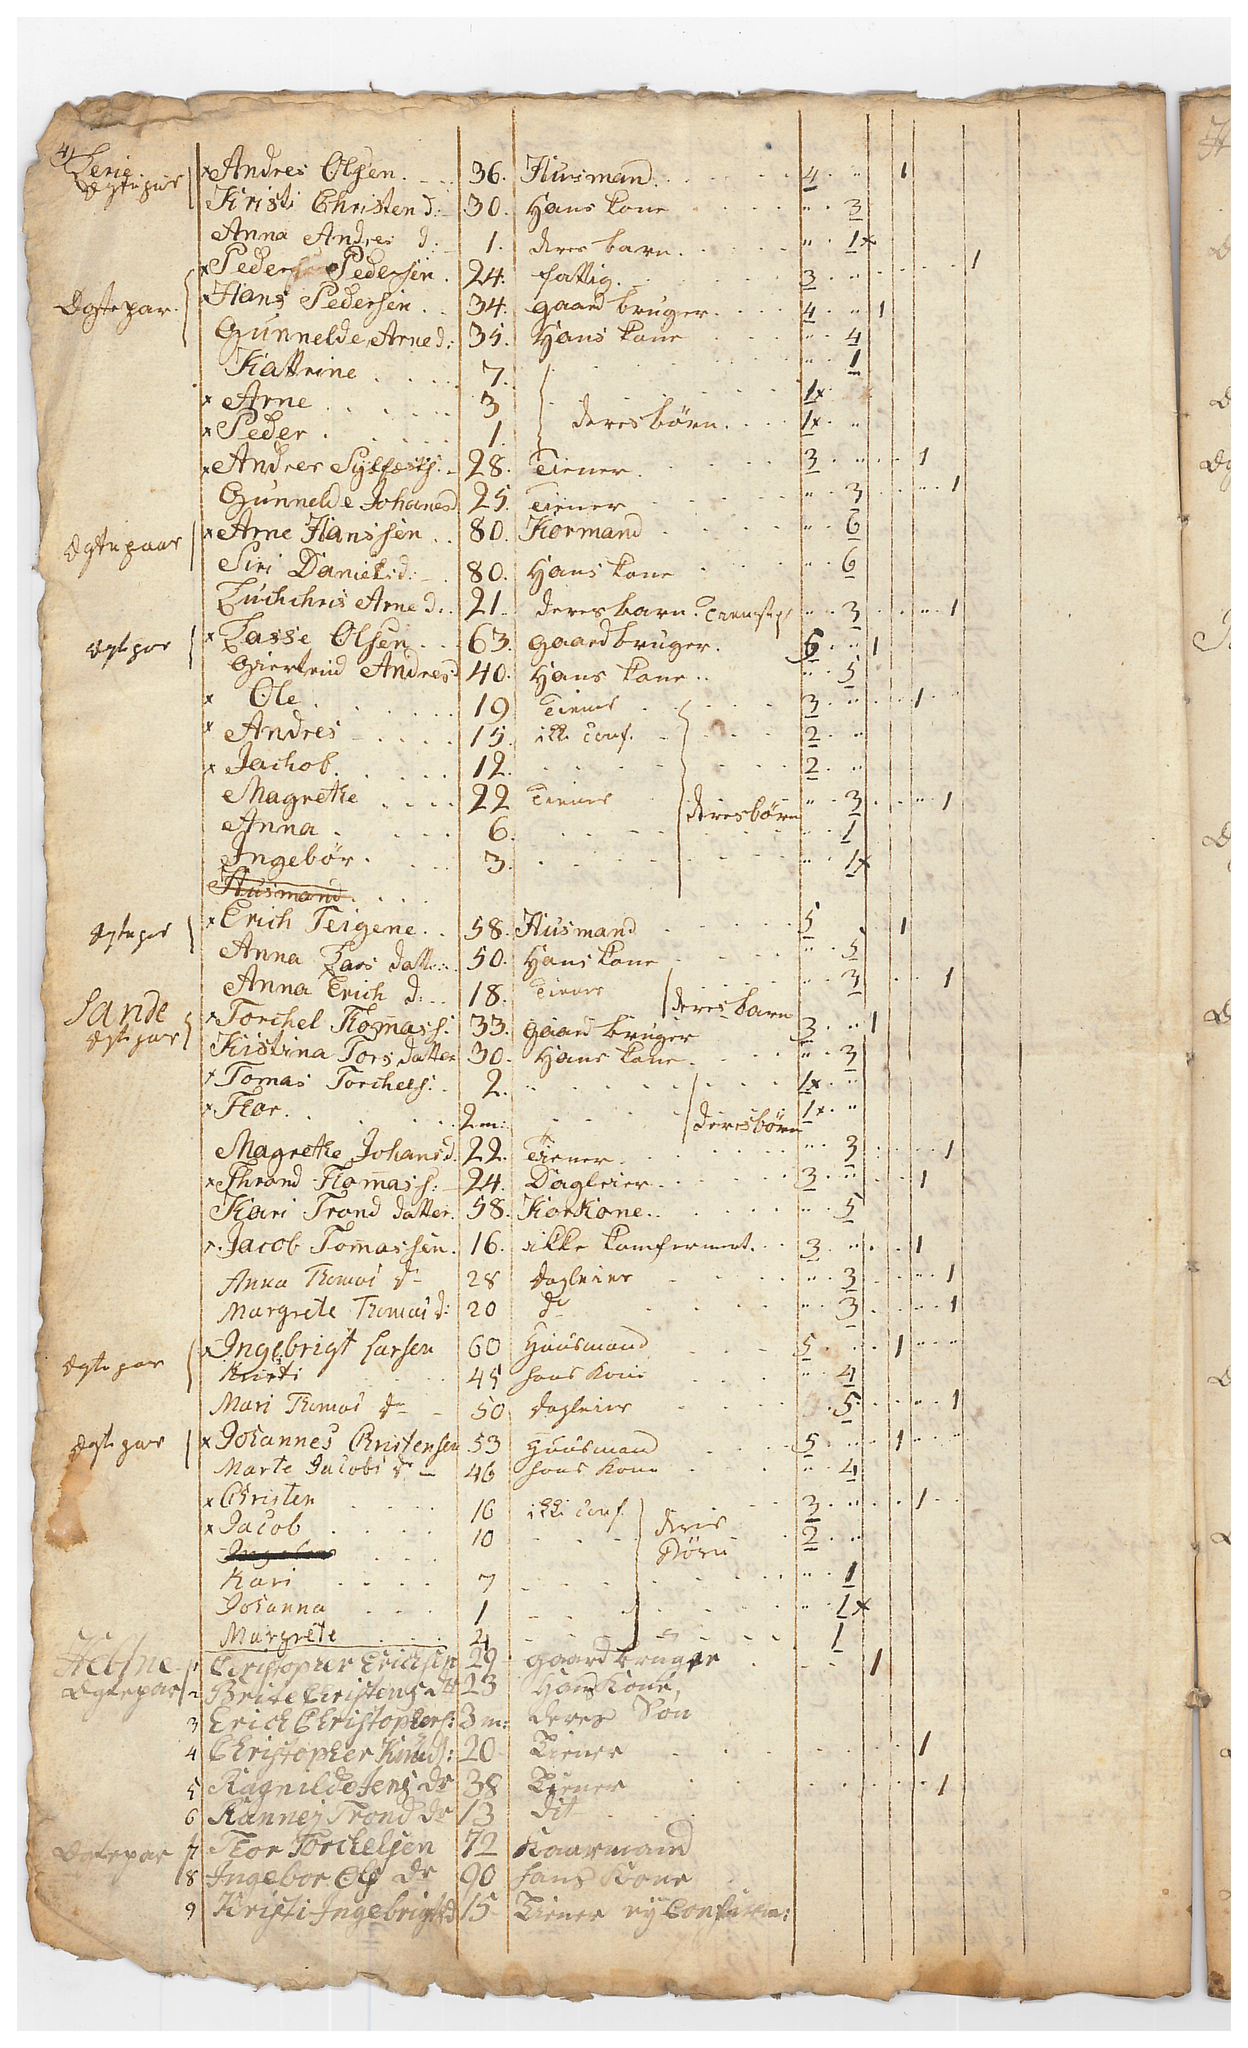 4)
Lerie. x Andres Olsen. 36. Husmand. 4. „ 1
Ægtepar Kristi Christen d: 30. Hans kone „ 3
Anna Andres d: 1. deres barn. „ 1x
x Peder Pedersen. 24. fattig. 3. „ 1
Ægtepar. x Hans Pedersen. 34. gaard bruger. 4. „ 1
Gunnelde Arne d: 35. Hans kone „ 4
Kattrine 7. „ 1
x Arne 3 1x.
x Peder. 1. deres børn. 1x. „
x Andres 28. Tiener. 3. „ 1
Gunnelde Johanes d 25. Tiener „ 3 „ 1
Ægtepaar x Arne Hanssen 80. Kormand „ 6
Siri Daniels d: 80. Hans kone „ 6
Arne d: 21. deres barn. „ 3 „ 1
Ægtepar x Lasse Olsen 63. gaardbruger. 6. „ 1
Giertrud Andres d 40. Hans kone.. „ 5
x Ole. 19 Tiener 3. „ 1
x Andres 15. ikke conf. 2. „
x Jachob. 12. 2. „
Magrethe 22 Tiener deres børn „ 3 „ 1
Anna. 6. „ 1
Ingebør. 3. „ 1x
Husmand
Ægtepar x Erich Teigene. 58. Husmand 5 1
Anna Lars datter 50. Hans kone „ 5
Anna Erich d: 18. Tiener deres barn „ 3 1
Sande
Ægtepar x Torchel Tomass: 33. gaard bruger 3. „ 1
Kistina Tors datter 30. Hans kone. „ 3
x Tomas Torchels: 2. 1x. „
x Thor. 2 m: deres børn 1x. „
Magrethe Johans d. 22. Tiener „ 3 1
x Thrond Tomass: 24. Dagleier 3. „ 1
Kari Trond datter. 58. Kor Kone.. „ 5
x Jacob Tomassen. 16. ikke komfermert. 3. „ 1
Anna Thomas dr 28 dagleier „ 3 „ 1
Margrete Thomas d: 20 do „ 3. 1
Ægtepar x Ingebrigt Larsen 60 Huusmand 5. 1 „ „
Kirsti 45 hans kone „ 4
Mari Thomas dr 50 dagleier 5. „ 1
Ægtepar x Johannes Christensen 53 Huusmand 5. „ 1
Marte Jacobs dr 46 hans kone „ 4
x Christen 16 ikke conf. 3. „ 1
x Jacob 10 deres Børn 2. „
Kari 7 „ 1
Johanna 1 „ 1x
Margrete 4 1
1 Christopher Erichsen 29 gaardbruger 1
Ægtepar 2 Brite Christens dtr 23 Hans Kone,
3 Erich Christophers: 3 m: deres Søn
4 Christopher Knuds: 20 Tiener 1
5 Ragnilde Jens dr 38 Tiener 1
6 Rannej Trond dr 13 dit
Ægtepar 7 Thor Torchelsen 72 Kaarmand
8 Ingebor Ols dr 90 hans Kone
9 Kristi Ingebrigts d 15 Tiener